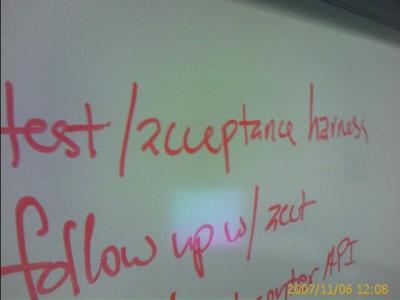 test/acceptance harness
follow up w/ acct
API
2007/11/06 12:08